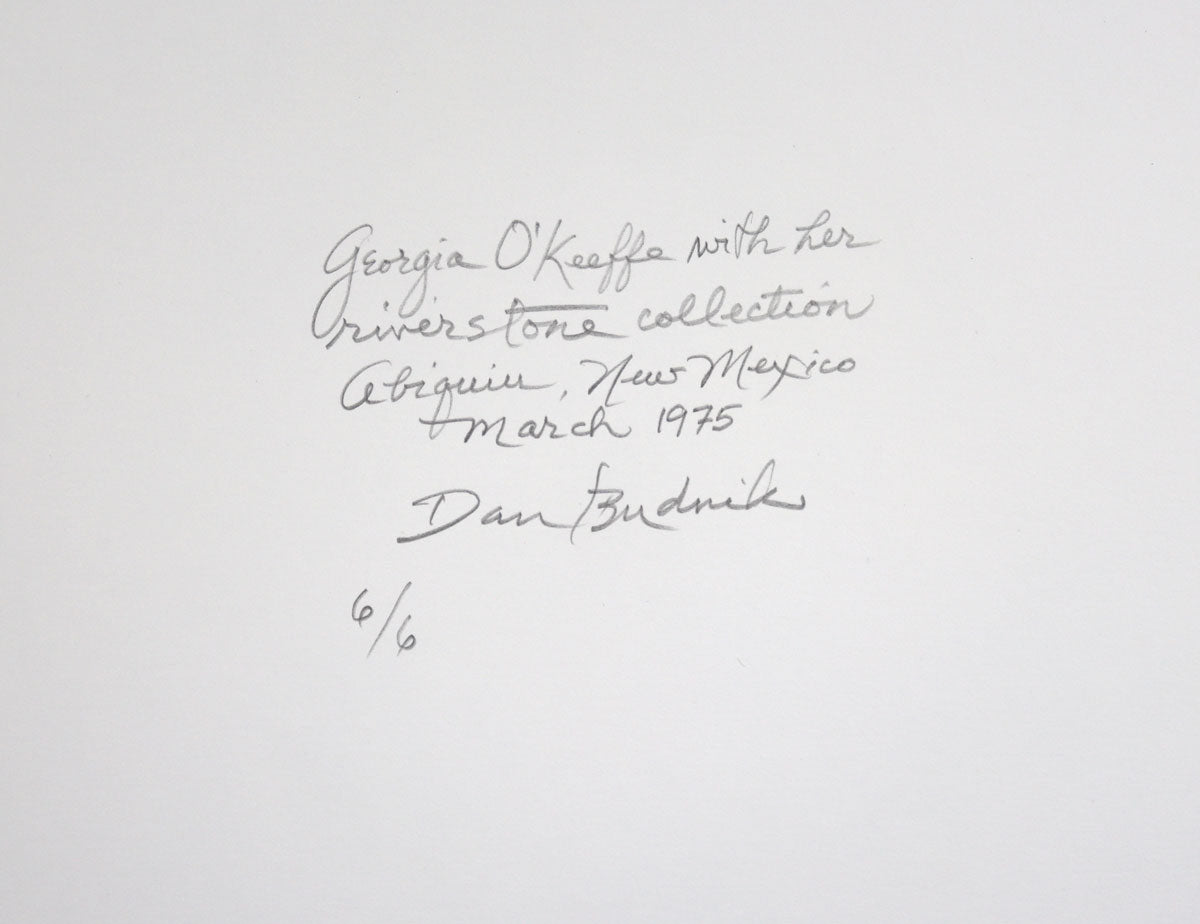 Georgia O'Keeffe with her
riverstone collection
Abiquiu, New Mexico
March 1975
Dan Budnik
6/6